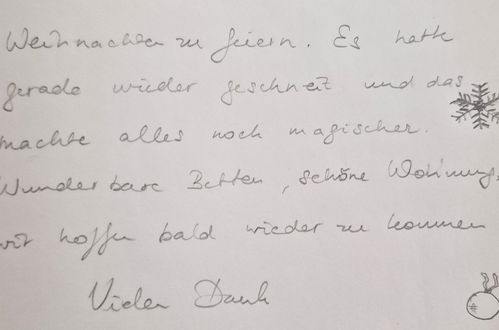 Weihnachten zu feiern. Es hatte
gerade wieder geschneit und das
machte alles noch magischer.
Wunderbare Betten, schöne Wohnung,
wir hoffen bald wieder zu kommen
Vielen Dank